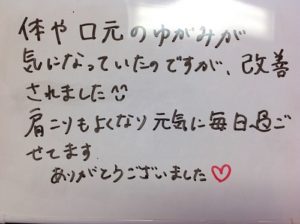 体や口元のゆがみが
気になっていたのですが、改善
されました
肩こりもよくなり元気に毎日過ご
せてます.
ありがとうございました♡